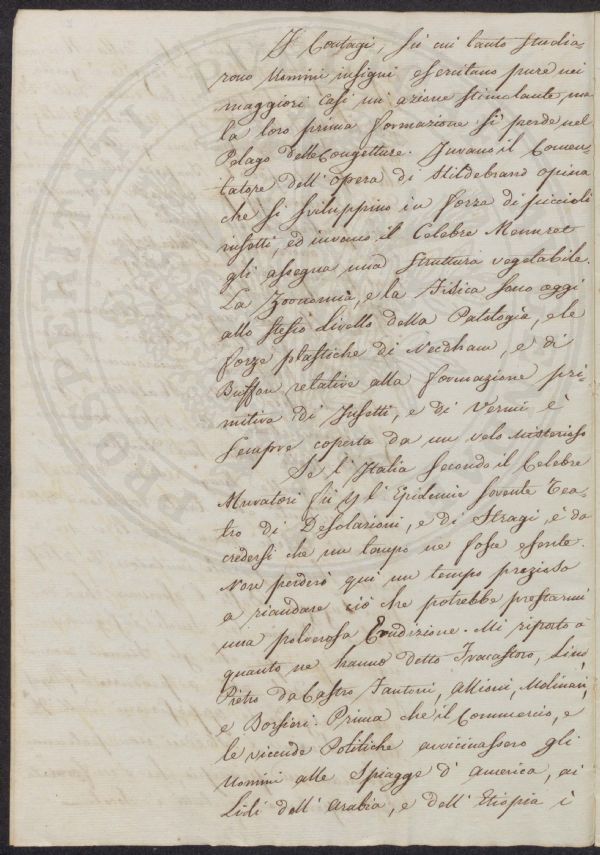 I Contagi, su cui tanto studia-
rono Uomini insigni esercitano pure nei
maggiori casi un' azione stimolante, ma
la loro prima formazione si perde nel
Pelago delle Congetture. Invano il Comen-
tatore dell' opera di Hildebrand opina
che si sviluppino in forza di piccioli
insetti, ed invano il Celebre Menuret
gli assegna una struttura vegetabile.
La Zoonomia, e la Fisica sono oggi
allo stesso livello della Patologia, e le
forze plastiche di Needham, e di
Buffon relative alla formazione pri-
mitiva di Insetti, e di Vermi, è
sempre coperta da un velo misterioso
Se l' Italia secondo il Celebre
Muratori fù p l' Epidemie sovente Tea-
tro di Desolazioni, e di Stragi, è da
credersi che un tempo ne fosse esente.
Non perderò qui un tempo prezioso
a riandare ciò che potrebbe prestarmi
una polverosa Erudizione. Mi riporto a
quanto ne hanno detto Fracastoro,
Pietro da Castro, Fantoni, Allioni, Molinari,
e Borsieri. Prima che il Commercio, e
le vicende Politiche avvicinassero gli
Uomini alle Spiagge d' America, ai
Lidi dell' Arabia, e dell' Etiopia i
PROSPERITATI